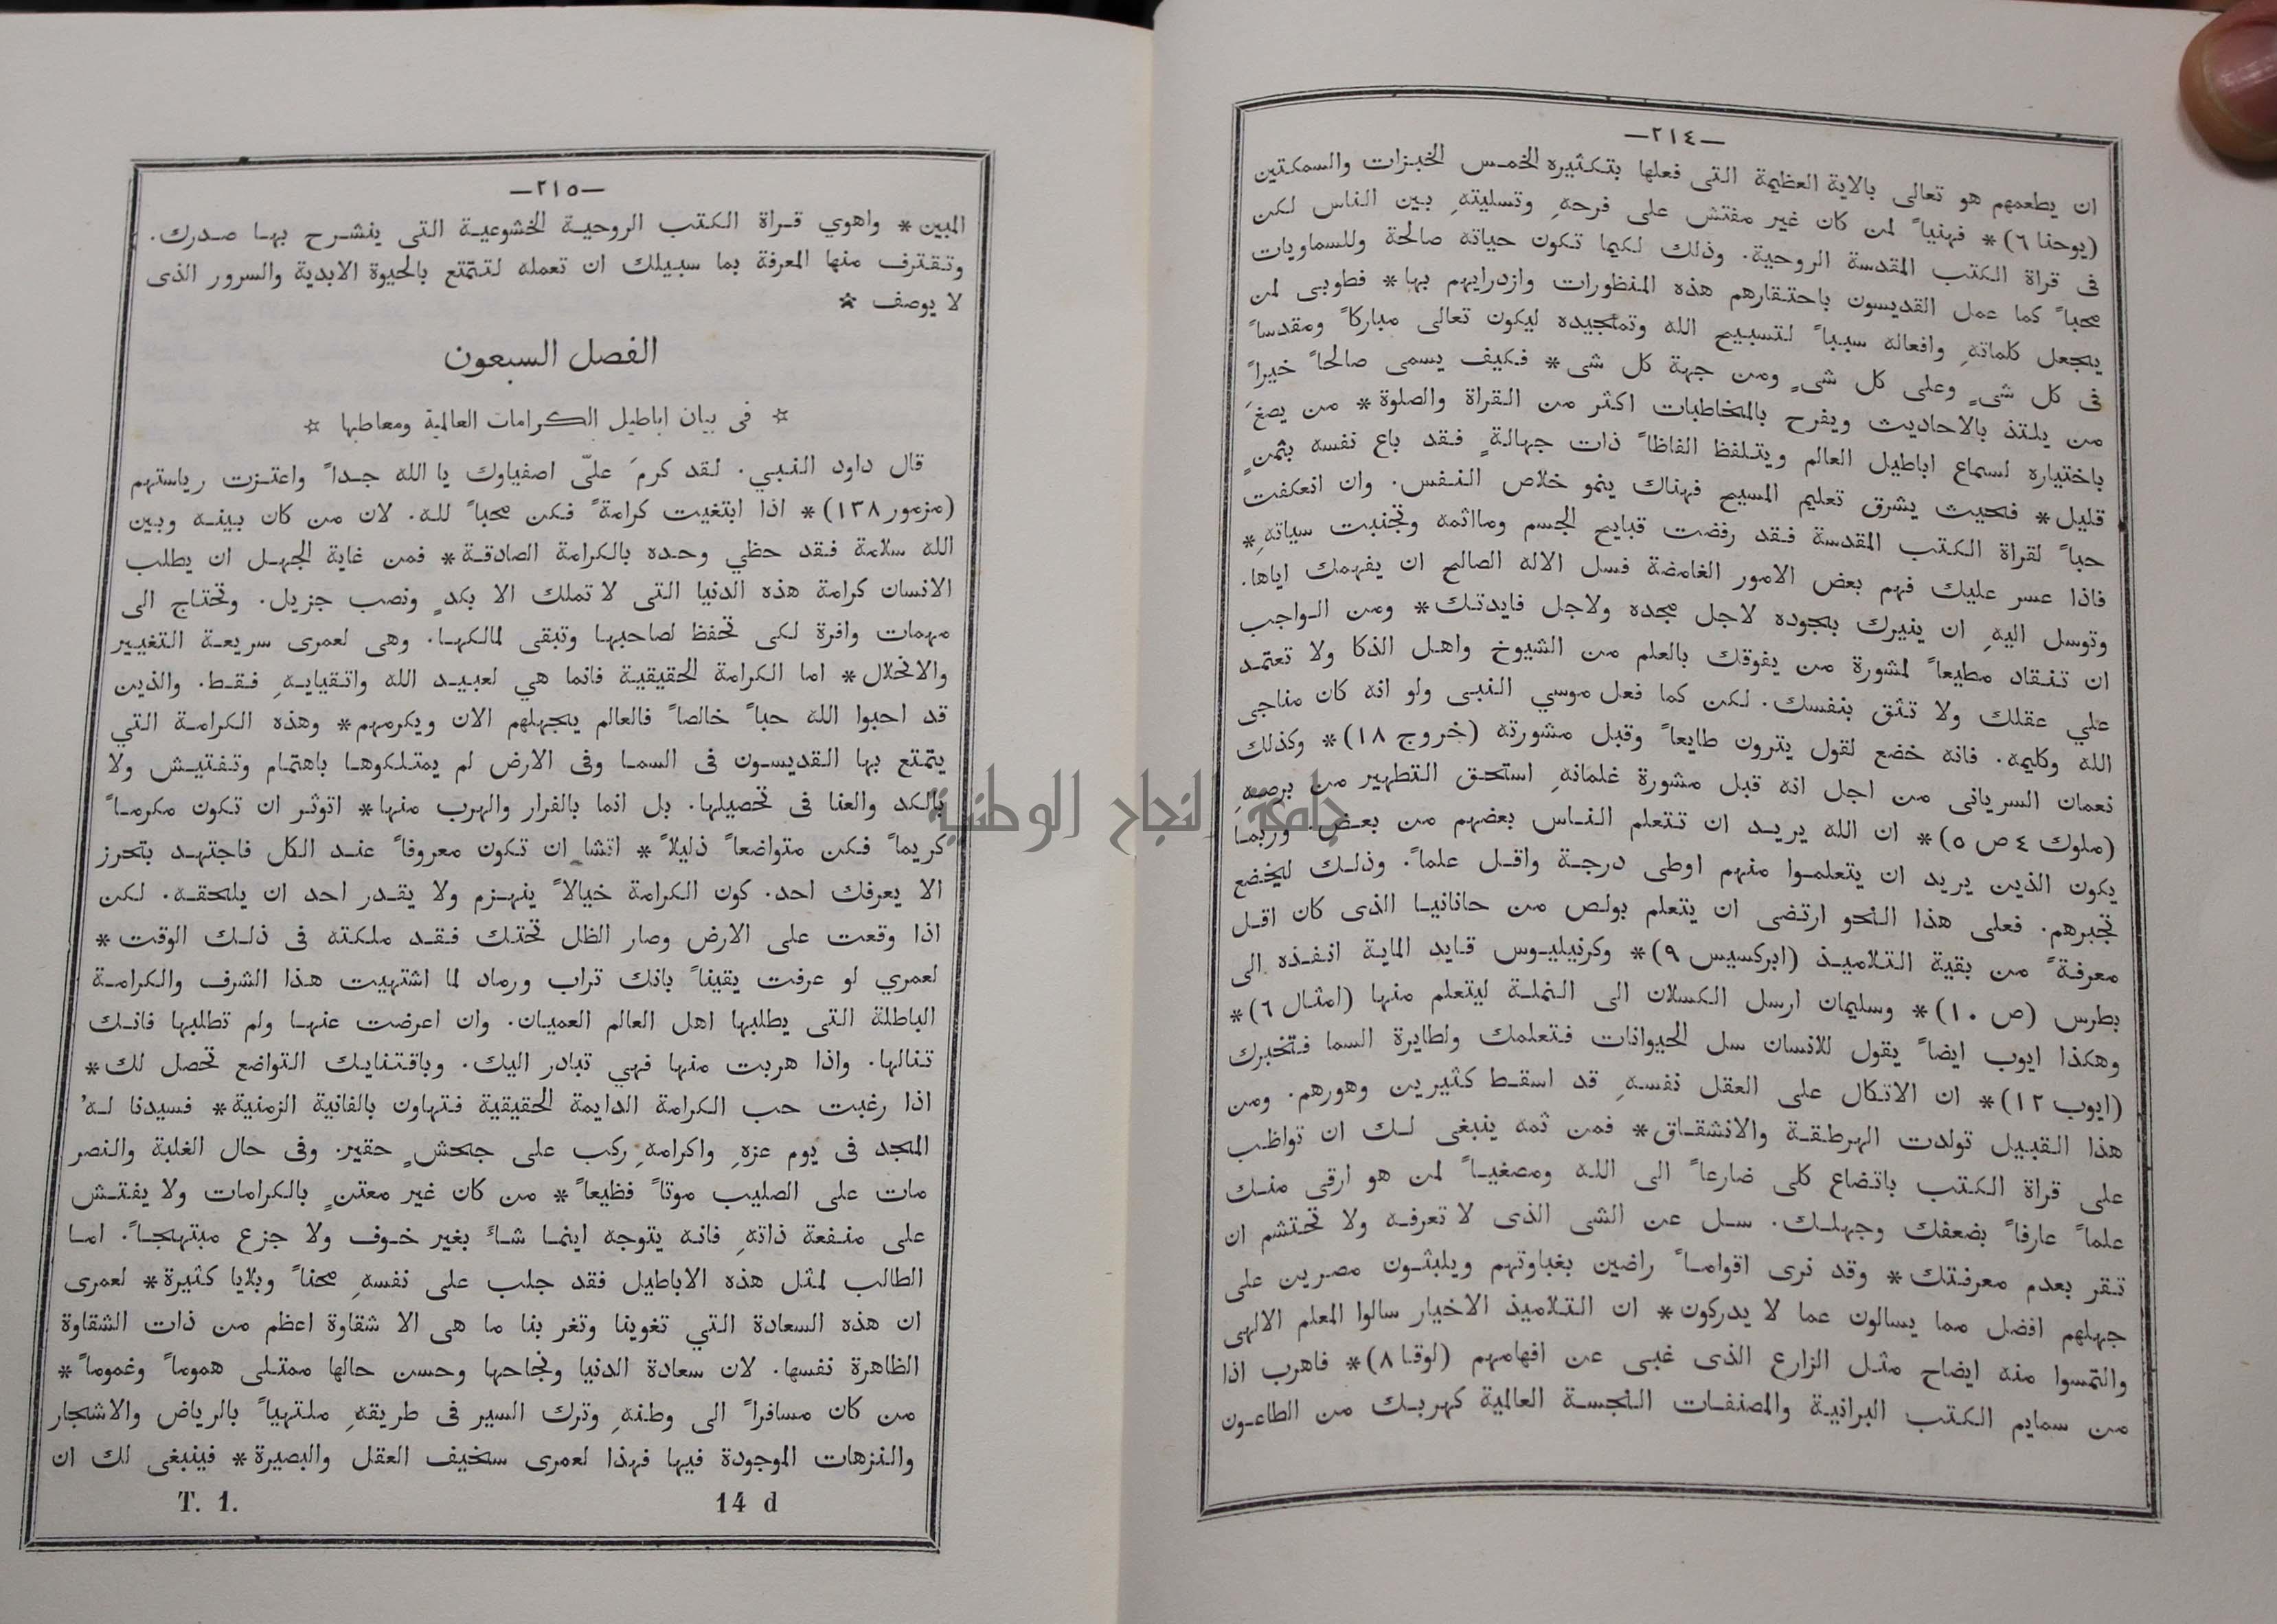 —٢١٤—
ان يطعمهم هو تعالى بالاية العظيمة التى فعلها بتكثيره الخمس الخبزات والسمكتين
(يوحنا ٦)* فهنياً لمن كان غير مفتش على فرحهِ وتسليتهِ بين الناس لكن
فى قراة الكتب المقدسة الروحية. وذلك لكيما تكون حياته صالحة وللسماويات
محباً كما عمل القديسون باحتقارهم هذه المنظورات وازدرايهم بها* فطوبى لمن
يجعل كلماتهِ وافعاله سبباً لتسبيح الله وتمجيده ليكون تعالى مباركاً ومقدساً
فى كل شىٍ وعلى كل شىٍ ومن جهة كل شى* فكيف يسمى صالحاً خيراً
من يلتذ بالاحاديث ويفرح بالمخاطبات اكثر من القراة والصلوة* من يصغَ
باختياره لسماع اباطيل العالم ويتلفظ الفاظاً ذات جهالةٍ فقد باع نفسه بثمنٍ
قليل* فحيث يشرق تعليم المسيح فهناك ينمو خلاص النفس. وان انعكفت
حباً لقراة الكتب المقدسة فقد رفضت قبايح الجسم ومااثمه وتجنبت سياتهِ*
فاذا عسر عليك فهم بعض الامور الغامضة فسل الاله الصالح ان يفهمك اياها.
وتوسل اليهِ ان ينيرك بجوده لاجل مجده ولاجل فايدتك* ومن الواجب
ان تنقاد مطيعاً لمشورة من يفوقك بالعلم من الشيوخ واهل الذكا ولا تعتمد
علي عقلك ولا تثق بنفسك. لكن كما فعل موسي النبى ولو انه كان مناجى
الله وكليمه. فانه خضع لقول يترون طايعاً وقبل مشورته (خروج ١٨)* وكذلك
نعمان السريانى من اجل انه قبل مشورة غلمانهِ استحق التطهير من برصهِ
(ملوك ٤ ص ٥)* ان الله يريد ان تتعلم الناس بعضهم من بعض. وربما
يكون الذين يريد ان يتعلموا منهم اوطى درجة واقل علماً. وذلك ليخضع
تجبرهم. فعلى هذا النحو ارتضى ان يتعلم بولص من حانانيا الذى كان اقل
معرفةً من بقية التلاميذ (ابركسيس ٩)* وكرنيليوس قايد الماية انفذه الى
بطرس (ص ١٠)* وسليمان ارسل الكسلان الى النملة ليتعلم منها (امثال ٦)*
وهكذا ايوب ايضاً يقول للانسان سل الحيوانات فتعلمك ولطايرة السما فتخبرك
(ايوب ١٢)* ان الاتكال على العقل نفسهِ قد اسقط كثيرين وهورهم. ومن
هذا القبيل تولدت الهرطقة والانشقاق* فمن ثمه ينبغى لك ان تواظب
على قراة الكتب باتضاع كلى ضارعاً الى الله ومصغياً لمن هو ارقى منك
علماً عارفاً بضعفك وجهلك. سل عن الشى الذى لا تعرفه ولا تحتشم ان
تقر بعدم معرفتك* وقد نرى اقواماً راضين بغباوتهم ويلبثون مصرين على
جهلهم افضل مما يسالون عما لا يدركون* ان التلاميذ الاخيار سالوا المعلم الالهى
والتمسوا منه ايضاح مثل الزارع الذى غبى عن افهامهم (لوقا ٨)* فاهرب اذا
من سمايم الكتب البرانية والمصنفات النجسة العالمية كهربك من الطاعون
—٢١٥—
المبين* واهوي قراة الكتب الروحية الخشوعية التى ينشرح بها صدرك.
وتقترف منها المعرفة بما سبيلك ان تعمله لتتمتع بالحيوة الابدية والسرور الذى
لا يوصف *
الفصل السبعون
☆ فى بيان اباطيل الكرامات العالمية ومعاطبها ☆
قال داود النبي. لقد كرمَ علىّ اصفياوك يا الله جداً واعتزت رياستهم
(مزمور ١٣٨)* اذا ابتغيت كرامةً فكن محباً لله. لان من كان بينه وبين
الله سلامة فقد حظي وحده بالكرامة الصادقة* فمن غاية الجهل ان يطلب
الانسان كرامة هذه الدنيا التى لا تملك الا بكدٍ ونصب جزيل. وتحتاج الى
مهمات وافرة لكى تحفظ لصاحبها وتبقى لمالكها. وهى لعمرى سريعة التغيير
والانحلال* اما الكرامة الحقيقية فانما هي لعبيد الله واتقيايهِ فقط. والذين
قد احبوا الله حباً خالصاً فالعالم يجهلهم الان ويكرمهم* وهذه الكرامة التي
يتمتع بها القديسون فى السما وفى الارض لم يمتلكوها باهتمام وتفتيش ولا
بالكد والعنا فى تحصيلها. بل انما بالفرار والهرب منها* اتوثر ان تكون مكرماً
كريماً فكن متواضعاً ذليلاً* اتشا ان تكون معروفاً عند الكل فاجتهد بتحرز
الا يعرفك احد. كون الكرامة خيالاً ينهزم ولا يقدر احد ان يلحقه. لكن
اذا وقعت على الارض وصار الظل تحتك فقد ملكته فى ذلك الوقت*
لعمري لو عرفت يقيناً بانك تراب ورماد لما اشتهيت هذا الشرف والكرامة
الباطلة التى يطلبها اهل العالم العميان. وان اعرضت عنها ولم تطلبها فانك
تنالها. واذا هربت منها فهي تبادر اليك. وباقتنايك التواضع تحصل لك*
اذا رغبت حب الكرامة الدايمة الحقيقية فتهاون بالفانية الزمنية* فسيدنا لهُ
المجد فى يوم عزهِ واكرامهِ ركب على جحشٍ حقير. وفى حال الغلبة والنصر
مات على الصليب موتاً فظيعاً* من كان غير معتنٍ بالكرامات ولا يفتش
على منفعة ذاتهِ فانه يتوجه اينما شاءَ بغير خوف ولا جزع مبتهجاً. اما
الطالب لمثل هذه الاباطيل فقد جلب على نفسهِ محناً وبلايا كثيرة* لعمرى
ان هذه السعادة التي تغوينا وتغر بنا ما هى الا شقاوة اعظم من ذات الشقاوة
الظاهرة نفسها. لان سعادة الدنيا ونجاحها وحسن حالها ممتلى هموماً وغموماً*
من كان مسافراً الى وطنهِ وترك السير فى طريقهِ ملتهياً بالرياض والاشجار
والنزهات الموجودة فيها فهذا لعمرى سخيف العقل والبصيرة* فينبغى لك ان
T. 1. 14 d
جامعة النجاح الوطنية